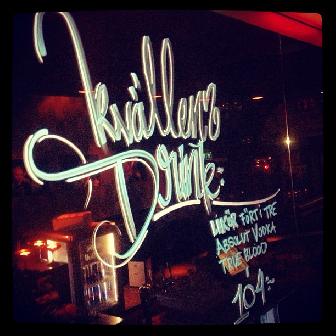 Kvällens
Drink:
LIKÖR FÖRT I TRE
ABSOLUT VODKA
TRUE BLOOD
104:-